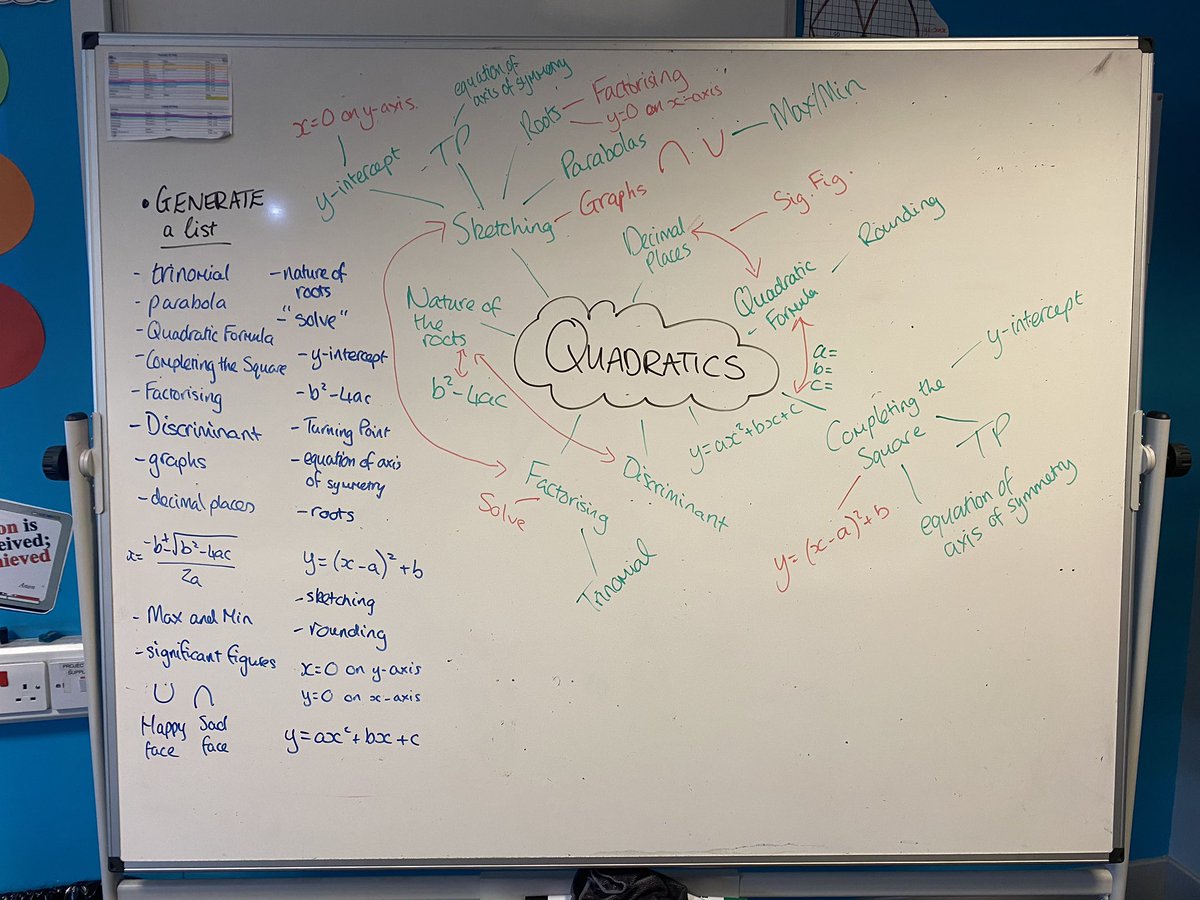 • GENERATE
a list
- trinomial
- parabola
- Quadratic Formula
- Completing the Square
- Factorising
- Discriminant
- graphs
- decimal places
x= -b±√b²-4ac
2a
- Max and Min
- significant figures
∪ ∩
Happy Sad
face face
- nature of
roots
- "solve"
- y-intercept
- b²-4ac
- Turning Point
- equation of axis
of symmetry
- roots
y=(x-a)²+b
- sketching
- rounding
x=0 on y-axis
y=0 on x-axis
y=ax²+bx+c
QUADRATICS
Sketching
y-intercept
x=0 on y-axis.
TP
equation of
axis of symmetry
Roots
Factorising
y=0 on x-axis
Parabolas
∩ ∪
Max/Min
Graphs
Decimal
Places
Sig. Fig.
Quadratic
- Formula
Rounding
a=
b=
c=
y=ax²+bx+c
Completing the
Square
y-intercept
TP
equation of
axis of symmetry
y=(x-a)²+b
Discriminant
Factorising
Solve
Trinomial
Nature of
the
roots
b²-4ac
on is
eived;
hieved